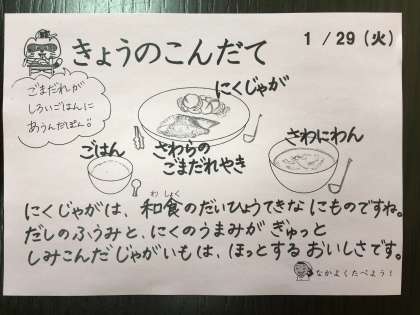 きょうのこんだて
1/29(火)
ごまだれが
しろいごはんに
あうんだぽん♡
にくじゃが
ごはん
さわらの
ごまだれやき
さわにわん
にくじゃがは、和食のだいひょうてきな にものですね。
わ しょく
だしのふうみと、にくのうまみが ぎゅっと
しみこんだ じゃがいもは、ほっとする おいしさです。
なかよくたべよう!